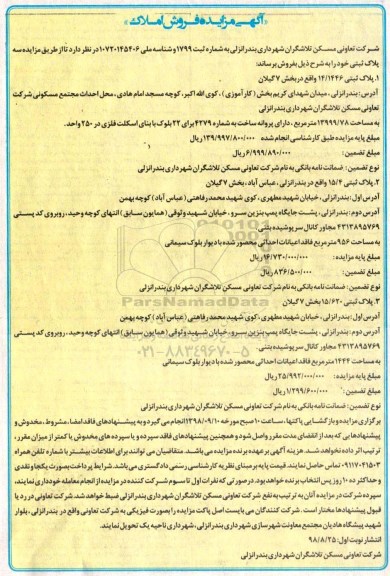 «آگهی مزایده فروش املاک»
شرکت تعاونی مسکن تلاشگران شهرداری بندرانزلی به شماره ثبت ۱۷۹۹ و شناسه ملی ۱۰۷۲۰۱۴۵۴۰۶ در نظر دارد تا از طریق مزایده سه
پلاک ثبتی خود را به شرح ذیل بفروش برساند:
۱. پلاک ثبتی ۱۴/۱۴۴۶ واقع در بخش ۷ گیلان
آدرس: بندرانزلی ، میدان شهدای کریم بخش ( کارآموزی ) ، کوی الله اکبر، کوچه مسجد امام هادی ، محل احداث مجتمع مسکونی شرکت
تعاونی مسکن تلاشگران شهرداری بندرانزلی
به مساحت ۱۳۹۹۹/۷۸ متر مربع ، دارای پروانه ساخت به شماره ۴۲۷۹ برای ۲۲ بلوک با بنای اسکلت فلزی در ۲۵۰ واحد.
مبلغ پایه مزایده طبق کارشناسی انجام شده ۱۳۹/۹۹۷/۸۰۰/۰۰۰ ریال
مبلغ تضمین: ۶/۹۹۹/۸۹۰/۰۰۰ ریال
نوع تضمین: ضمانت نامه بانکی به نام شرکت تعاونی مسکن تلاشگران شهرداری بندرانزلی
۲. پلاک ثبتی ۱۵/۴ واقع در بندرانزلی ، عباس آباد، بخش ۷ گیلان
آدرس اول: بندرانزلی ، خیابان شهید مطهری ، کوی شهید محمد رفاهتی ( عباس آباد ) کوچه بهمن
آدرس دوم: بندرانزلی، پشت جایگاه پمپ بنزین سرو، خیابان شهید وثوقی ( همایون سابق ) انتهای کوچه وحید، روبروی کد پستی
۴۳۱۳۸۹۵۷۶۹ مجاور کانال سرپوشیده بتنی
به مساحت ۹۵۶ متر مربع فاقد اعیانات احداثی محصور شده با دیوار بلوک سیمانی
مبلغ پایه مزایده: ۱۶/۷۳۰/۰۰۰/۰۰۰ ریال
مبلغ تضمین: ۸۳۶/۵۰۰/۰۰۰ ریال
نوع تضمین: ضمانت نامه بانکی به نام شرکت تعاونی مسکن تلاشگران شهرداری بندرانزلی
۳. پلاک ثبتی ۱۵/۶۲۰ بخش ۷ گیلان
آدرس اول: بندرانزلی ، خیابان شهید مطهری ، کوی شهید محمد رفاهتی ( عباس آباد ) کوچه بهمن
آدرس دوم: بندرانزلی، پشت جایگاه پمپ بنزین سرو، خیابان شهید وثوقی ( همایون سابق ) انتهای کوچه وحید، روبروی کد پستی
۴۳۱۳۸۹۵۷۶۹ مجاور کانال سرپوشیده بتنی.
به مساحت ۱۴۴۲ متر مربع فاقد اعیانات احداثی محصور شده با دیوار بلوک سیمانی
مبلغ پایه مزایده: ۲۵/۹۹۲/۰۰۰/۰۰۰ ریال
مبلغ تضمین: ۱/۲۹۹/۶۰۰/۰۰۰ ریال
نوع تضمین: ضمانت نامه بانکی به نام شرکت تعاونی مسکن تلاشگران شهرداری بندرانزلی
برگزاری مزایده و بازگشایی پاکتها، ساعت ۱۰ صبح مورخه ۱۳۹۸/۰۹/۱۰ انجام می گیرد و به پیشنهادهای فاقد امضا، مشروط، مخدوش و
پیشنهادهایی که بعد از انقضای مدت مقرر واصل شود و همچنین پیشنهادهای فاقد سپرده و یا سپرده های مخدوش یا کمتر از میزان مقرر،
ترتیب اثر داده نخواهد شد. هزینه آگهی بر عهده برنده مزایده می باشد. متقاضیان می توانند برای اطلاعات بیشتر با شماره تلفن همراه
۰۹۱۱۷۰۲۱۵۰۳ تماس حاصل نمایند. قیمت پایه بر مبنای نظریه کارشناسی رسمی دادگستری می باشد. شرایط پرداخت بصورت یکجا و نقدی
و حداکثر ده ۱۰ روز پس انتخاب برنده خواهد بود. در صورتی که نفرات اول تا سوم شرکت کننده در مزایده از انجام معامله خودداری نمایند،
سپرده شرکت در مزایده آنان به ترتیب به نفع شرکت تعاونی مسکن تلاشگران شهرداری بندرانزلی ضبط خواهد شد. شرکت تعاونی در رد یا
قبول پیشنهادها مختار است. شرکت کنندگان می بایست اصل پاکت مزایده را بصورت فیزیکی به شرکت تعاونی واقع در بندرانزلی ، بلوار
شهید پیشگاه هادیان مجتمع معاونت شهرسازی شهرداری بندرانزلی، شهرداری ناحیه یک تحویل نمایند.
انتشار نوبت اول: ۹۸/۸/۲۵
شرکت تعاونی مسکن تلاشگران شهرداری بندرانزلی
ParsNamadData
۰۲۱-۸۸۳۴۹۶۷۰-۵